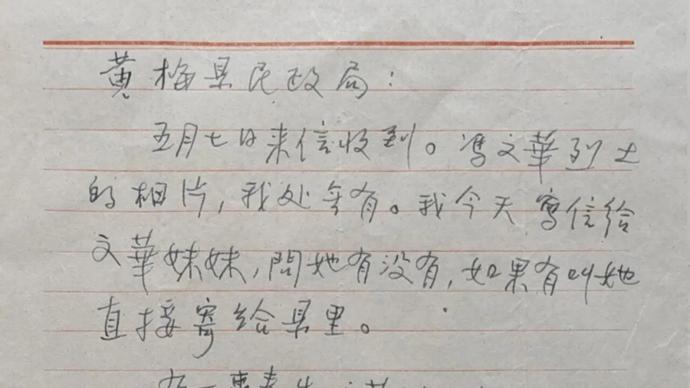 黄梅县民政局：
五月七日来信收到。冯文華烈士
的相片，我处无有。我今天写信给
文華妹妹，問她有没有，如果有叫她
直接寄给县里。